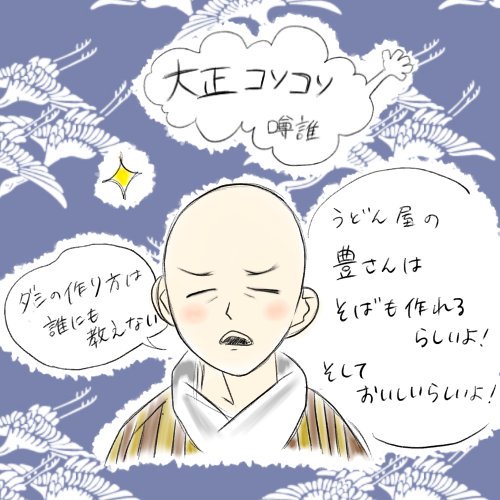 大正コソコソ
噂誰
うどん屋の
豊さんは
そばも作れる
らしいよ!
そして
おいしいらしいよ!
ダシの作り方は
誰にも
教えない